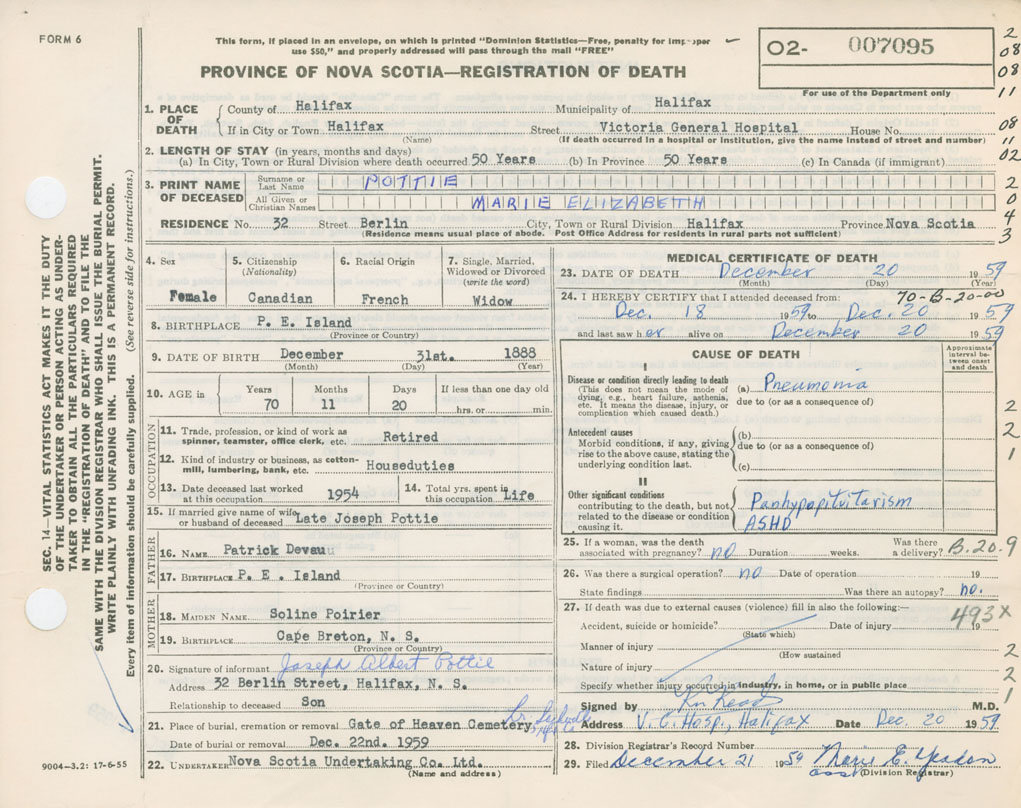 FORM 6
This form, if placed in an envelope, on which is printed "Dominion Statistics—Free, penalty for improper
use $50," and properly addressed will pass through the mail "FREE"
PROVINCE OF NOVA SCOTIA—REGISTRATION OF DEATH
02- 007095
For use of the Department only
2
08
08
11
08
11
02
2
0
4
3
SEC. 14—VITAL STATISTICS ACT MAKES IT THE DUTY
OF THE UNDERTAKER OR PERSON ACTING AS UNDER-
TAKER TO OBTAIN ALL THE PARTICULARS REQUIRED
IN THE "REGISTRATION OF DEATH" AND TO FILE THE
SAME WITH THE DIVISION REGISTRAR WHO SHALL ISSUE THE BURIAL PERMIT.
WRITE PLAINLY WITH UNFADING INK. THIS IS A PERMANENT RECORD.
Every item of information should be carefully supplied. (See reverse side for instructions.)
1. PLACE OF DEATH
County of Halifax Municipality of Halifax
If in City or Town Halifax Street Victoria General Hospital House No.
(Name) (If death occurred in a hospital or institution, give the name instead of street and number)
2. LENGTH OF STAY (in years, months and days)
(a) In City, Town or Rural Division where death occurred 50 Years (b) In Province 50 Years (c) In Canada (if immigrant)
3. PRINT NAME OF DECEASED
Surname or Last Name POTTIE
All Given or Christian Names MARIE ELIZABETH
RESIDENCE No. 32 Street Berlin City, Town or Rural Division Halifax Province Nova Scotia
(Residence means usual place of abode. Post Office Address for residents in rural parts not sufficient)
4. Sex
Female
5. Citizenship
(Nationality)
Canadian
6. Racial Origin
French
7. Single, Married,
Widowed or Divorced
(write the word)
Widow
8. BIRTHPLACE P. E. Island
(Province or Country)
9. DATE OF BIRTH December 31st. 1888
(Month) (Day) (Year)
10. AGE in
Years Months Days If less than one day old
70 11 20 hrs. or min.
OCCUPATION
11. Trade, profession, or kind of work as
spinner, teamster, office clerk, etc. Retired
12. Kind of industry or business, as cotton-
mill, lumbering, bank, etc. Houseduties
13. Date deceased last worked
at this occupation 1954
14. Total yrs. spent in
this occupation Life
15. If married give name of wife
or husband of deceased Late Joseph Pottie
FATHER
16. NAME Patrick Devau
17. BIRTHPLACE P. E. Island
(Province or Country)
MOTHER
18. MAIDEN NAME Soline Poirier
19. BIRTHPLACE Cape Breton, N. S.
(Province or Country)
20. Signature of informant Joseph Albert Pottie
Address 32 Berlin Street, Halifax, N. S.
Relationship to deceased Son
21. Place of burial, cremation or removal Gate of Heaven Cemetery,
Date of burial or removal Dec. 22nd. 1959
22. UNDERTAKER Nova Scotia Undertaking Co. Ltd.
(Name and address)
9004—3.2: 17-6-55
MEDICAL CERTIFICATE OF DEATH
23. DATE OF DEATH December 20 1959
(Month) (Day) (Year)
24. I HEREBY CERTIFY that I attended deceased from: 70-B-20-00
Dec. 18 1959 to Dec. 20 1959
and last saw her alive on December 20 1959
CAUSE OF DEATH
Approximate
interval be-
tween onset
and death
I
Disease or condition directly leading to death
(This does not mean the mode of
dying, e.g., heart failure, asthenia,
etc. It means the disease, injury, or
complication which caused death.)
(a) Pneumonia
due to (or as a consequence of)
Antecedent causes
Morbid conditions, if any, giving
rise to the above cause, stating the
underlying condition last.
(b)
due to (or as a consequence of)
(c)
II
Other significant conditions
contributing to the death, but not
related to the disease or condition
causing it.
Panhypopituitarism
ASHD
2
2
1
25. If a woman, was the death
associated with pregnancy? no Duration weeks. Was there
a delivery? B.20.9
26. Was there a surgical operation? no Date of operation 19
State findings Was there an autopsy? no.
27. If death was due to external causes (violence) fill in also the following:— 493X
Accident, suicide or homicide? Date of injury 19
(State which)
Manner of injury
(How sustained
Nature of injury
Specify whether injury occurred in industry, in home, or in public place
2
2
1
Signed by M.D.
Address V. G. Hosp., Halifax Date Dec. 20 1959
28. Division Registrar's Record Number
29. Filed December 21 1959 Marie E. Yeadon
(Division Registrar)